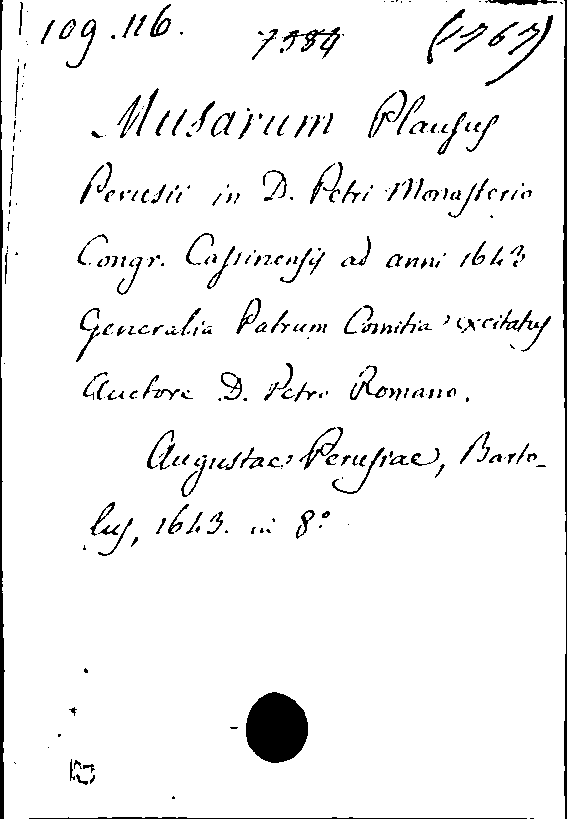 109.116. 7984 (1767)
Musarum Plausus
Perusii in D. Petri Monasterio
Congr. Cassinensis ad anni 1643
Generalia Patrum Comitia excitatus
Auctore D. Petro Romano.
Augustae Perusiae, Barto-
lus, 1643. in 8°